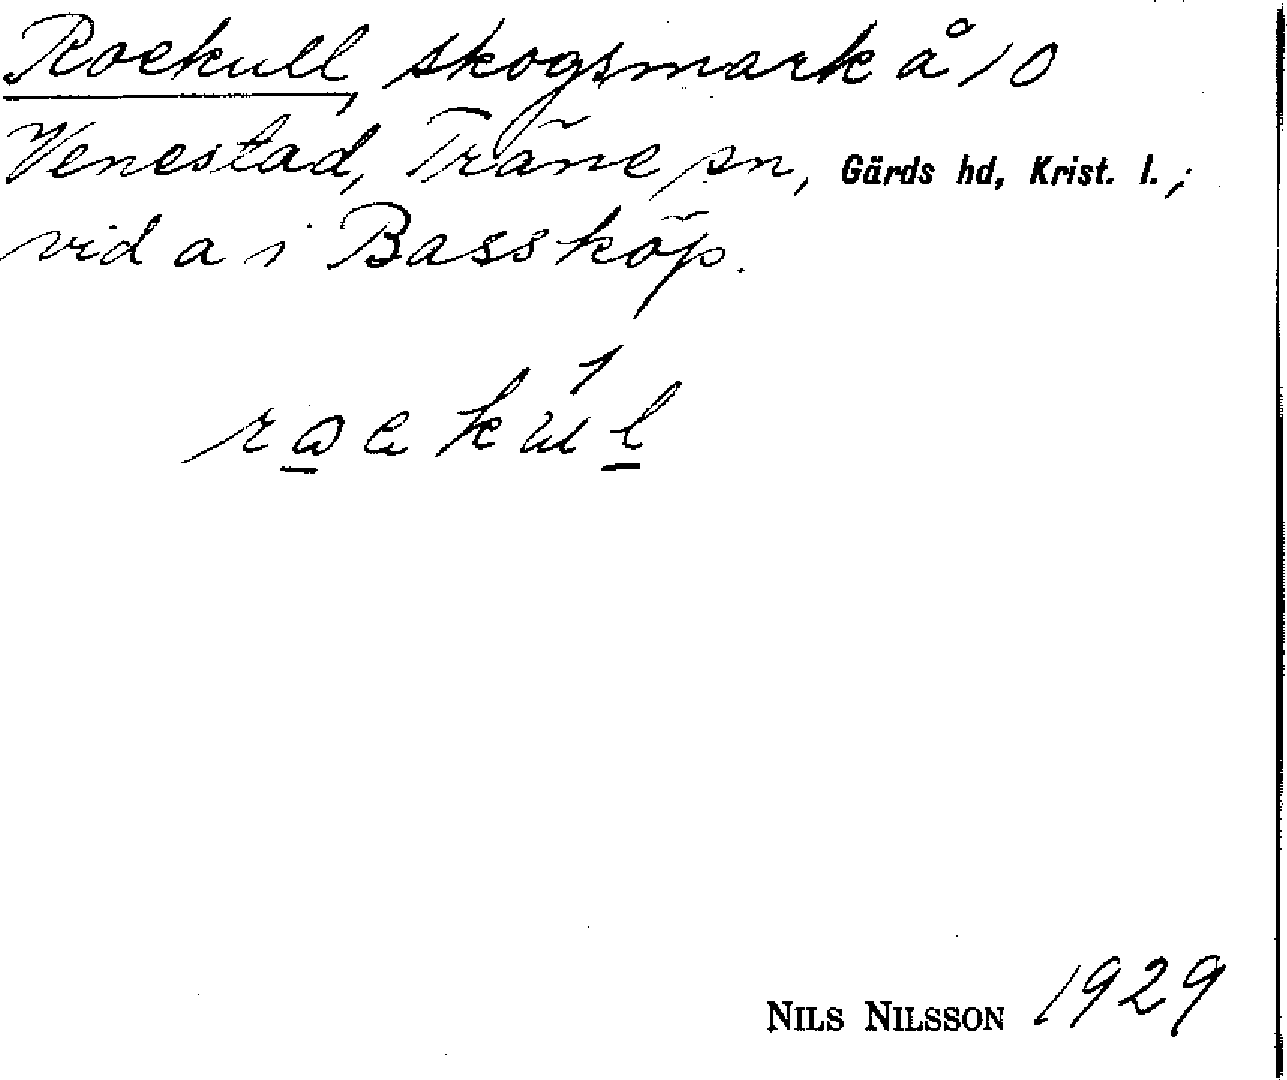 Roekull, skogsmark å 10
Venestad, Träne sn, Gärds hd, Krist. l.,;
vid a i Bassköp.
NILS NILSSON 1929